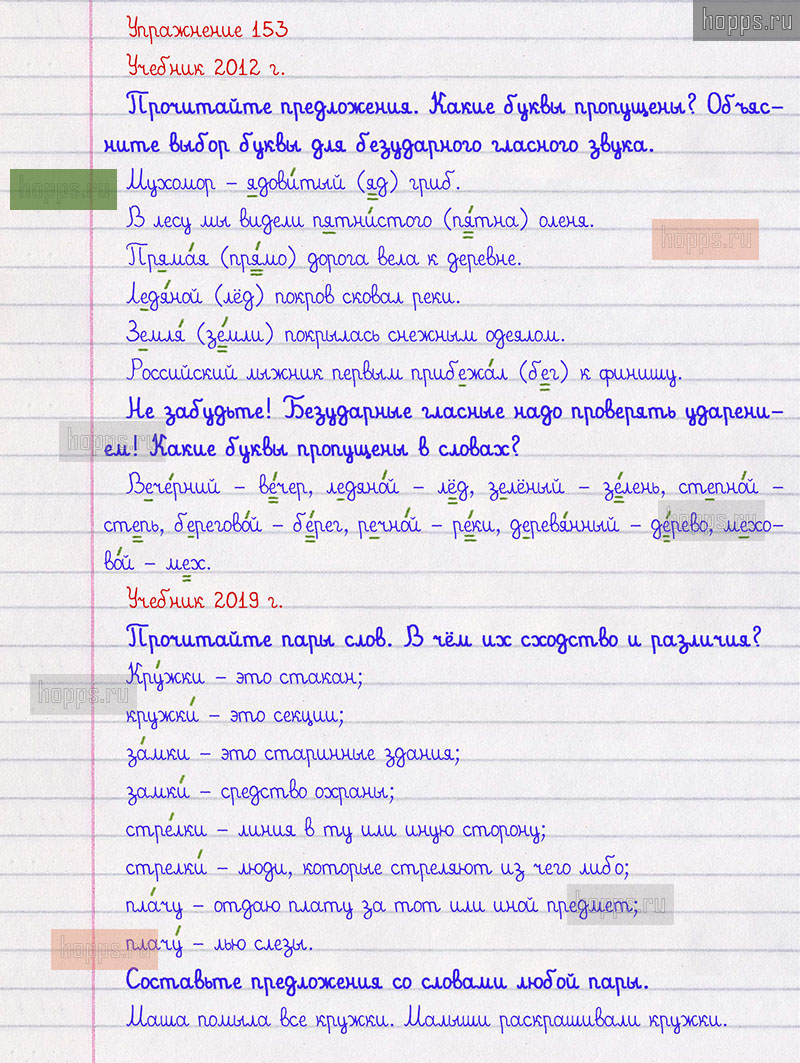 hopps.ru
Упражнение 153
Учебник 2012 г.
Прочитайте предложения. Какие буквы пропущены? Объяс-
ните выбор буквы для безударного гласного звука.
hopps.ru
Мухомор – ядови́тый (яд) гриб.
В лесу мы видели пятни́стого (пя́тна) оленя.
hopps.ru
Пряма́я (пря́мо) дорога вела к деревне.
Ледяно́й (лёд) покров сковал реки.
Земля́ (зе́мли) покрылась снежным одеялом.
Российский лыжник первым прибежа́л (бег) к финишу.
Не забудьте! Безударные гласные надо проверять ударени-
ем! Какие буквы пропущены в словах?
hopps.ru
Вече́рний – ве́чер, ледяно́й – лёд, зелёный – зе́лень, степно́й –
степь, берегово́й – бе́рег, речно́й – ре́ки, деревя́нный – де́рево, мехо-
hopps.ru
во́й – мех.
Учебник 2019 г.
Прочитайте пары слов. В чём их сходство и различия?
Кру́жки – это стакан;
hopps.ru
кружки́ – это секции;
за́мки – это старинные здания;
замки́ – средство охраны;
стре́лки – линия в ту или иную сторону;
стрелки́ – люди, которые стреляют из чего либо;
пла́чу – отдаю плату за тот или иной предмет;
hopps.ru
плачу́ – лью слезы.
hopps.ru
Составьте предложения со словами любой пары.
Маша помыла все кружки. Малыши раскрашивали кружки.